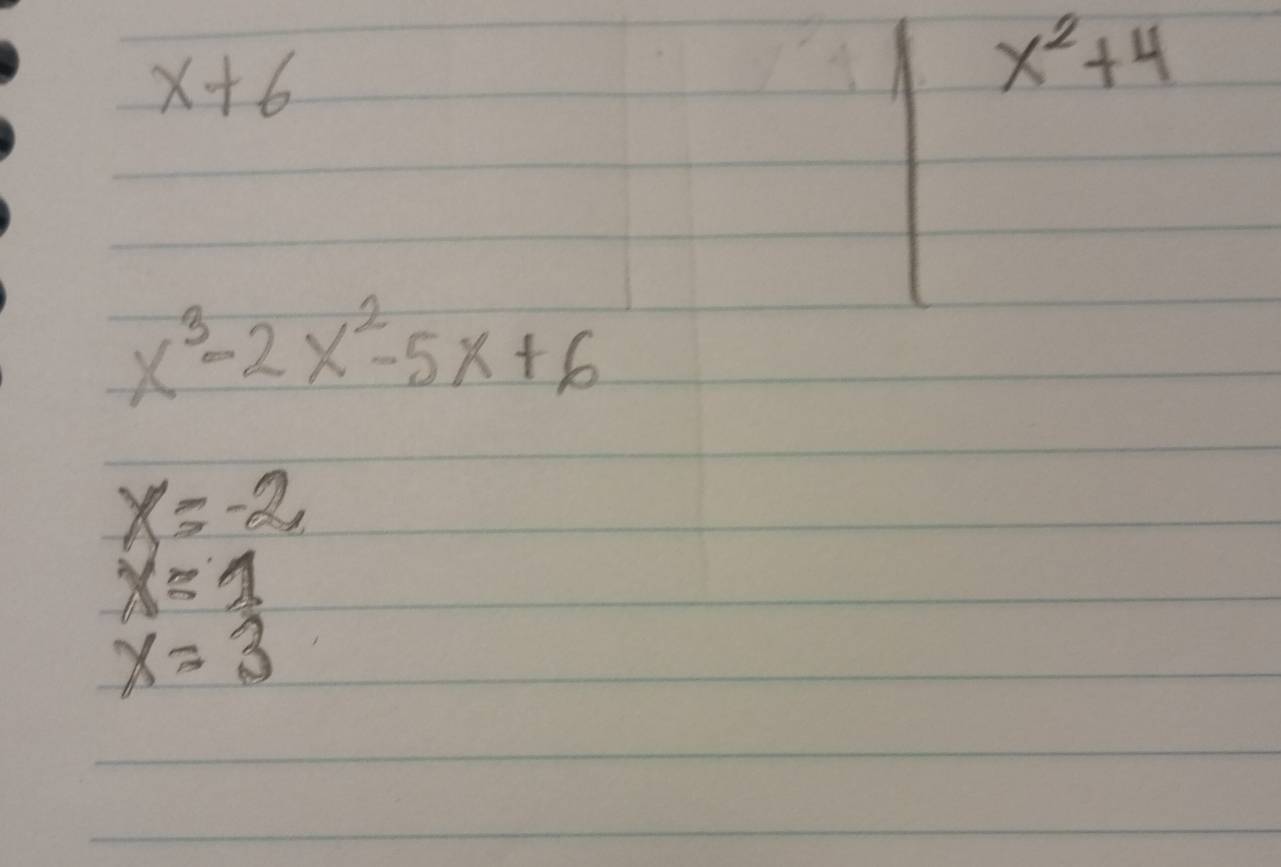 x+6
x²+4
x³-2x²-5x+6
x=-2
x=1
x=3